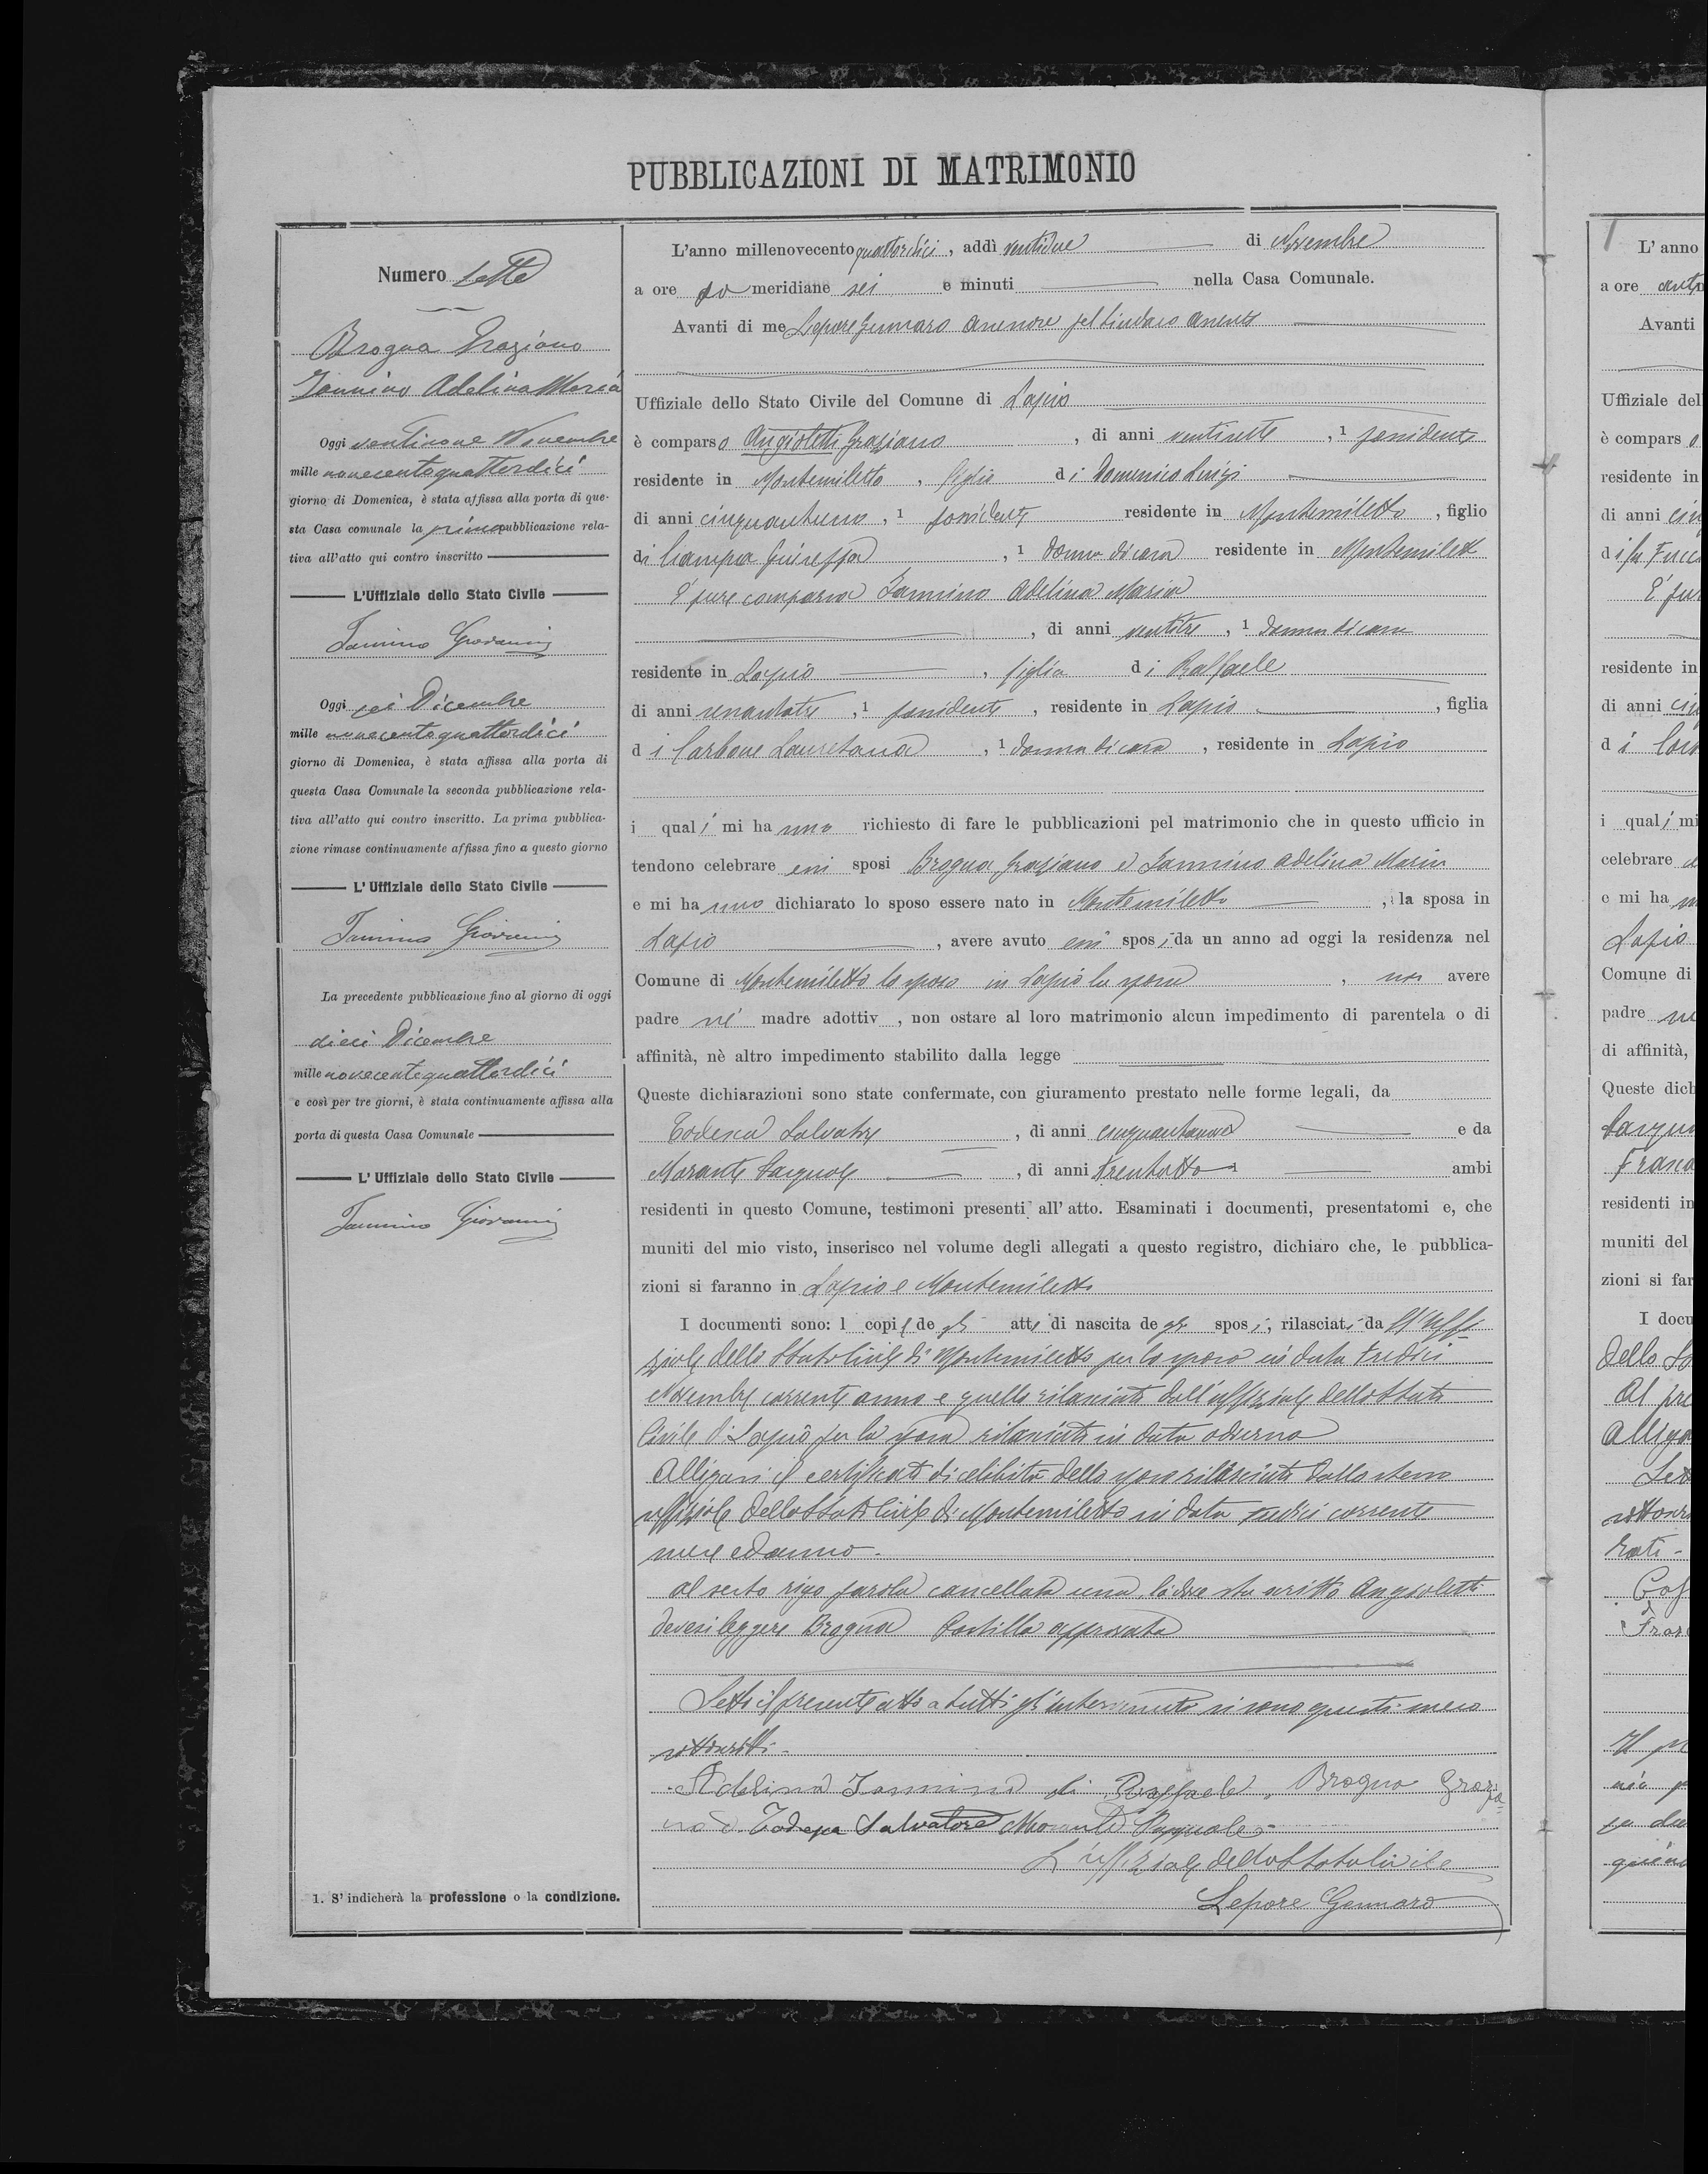 PUBBLICAZIONI DI MATRIMONIO
Numero Sette
Brogna Graziano
Iannino Adelina Maria
Oggi ventinove Novembre
mille novecentoquattordici
giorno di Domenica, è stata affissa alla porta di que-
sta Casa comunale la prima pubblicazione rela-
tiva all'atto qui contro inscritto
L'Uffiziale dello Stato Civile
Iannino Giovanni
Oggi sei Dicembre
mille novecentoquattordici
giorno di Domenica, è stata affissa alla porta di
questa Casa Comunale la seconda pubblicazione rela-
tiva all'atto qui contro inscritto. La prima pubblica-
zione rimase continuamente affissa fino a questo giorno
L'Uffiziale dello Stato Civile
Iannino Giovanni
La precedente pubblicazione fino al giorno di oggi
dieci Dicembre
mille novecentoquattordici
e così per tre giorni, è stata continuamente affissa alla
porta di questa Casa Comunale
L'Uffiziale dello Stato Civile
Iannino Giovanni
1. S'indicherà la professione o la condizione.
L'anno millenovecento quattordici, addì ventidue di Novembre
a ore po meridiane sei e minuti nella Casa Comunale.
Avanti di me Lepore Gennaro assessore pel Sindaco assente
Uffiziale dello Stato Civile del Comune di Lapio
è comparso Angioletti Graziano, di anni ventisette, 1 possidente
residente in Montemiletto, figlio di Domenico Luigi
di anni cinquantuno, 1 possidente residente in Montemiletto, figlio
di Ciampa Giuseppa, 1 donna di casa residente in Montemiletto
È pure comparsa Iannino Adelina Maria
, di anni ventitre, 1 donna di casa
residente in Lapio, figlia di Raffaele
di anni sessantatre, 1 possidente, residente in Lapio, figlia
di Carbone Lauretana, 1 donna di casa, residente in Lapio
i quali mi hanno richiesto di fare le pubblicazioni pel matrimonio che in questo ufficio in
tendono celebrare essi sposi Brogna Graziano e Iannino Adelina Maria
e mi hanno dichiarato lo sposo essere nato in Montemiletto, la sposa in
Lapio, avere avuto essi sposi da un anno ad oggi la residenza nel
Comune di Montemiletto lo sposo in Lapio la sposa, non avere
padre nè madre adottiv, non ostare al loro matrimonio alcun impedimento di parentela o di
affinità, nè altro impedimento stabilito dalla legge
Queste dichiarazioni sono state confermate, con giuramento prestato nelle forme legali, da
Todesca Salvatore, di anni cinquantanove e da
Morante Pasquale, di anni trentotto ambi
residenti in questo Comune, testimoni presenti all'atto. Esaminati i documenti, presentatomi e, che
muniti del mio visto, inserisco nel volume degli allegati a questo registro, dichiaro che, le pubblica-
zioni si faranno in Lapio e Montemiletto
I documenti sono: l copie de gli atti di nascita de gli sposi, rilasciati da ll'uffi-
ziale dello Stato Civile di Montemiletto per lo sposo in data tredici
Novembre corrente anno e quello rilasciato dall'uffiziale dello Stato
Civile di Lapio per la sposa rilasciato in data odierna
Alligasi il certificato di celibità dello sposo rilasciato dallo stesso
uffiziale dello Stato Civile di Montemiletto in data tredici corrente
mese ed anno.
al sesto rigo parola cancellata una, là dove sta scritto Angioletti
devesi leggere Brogna Postilla approvata
Letto il presente atto a tutti gl'intervenuti si sono questi meco
sottoscritti.
Adelina Iannino di Raffaele, Brogna Grazia=
no Todesca Salvatore Morante Pasquale
L'uffiziale dello Stato Civile
Lepore Gennaro
L'anno
a ore
Avanti
Uffiziale del
è compars o
residente in
di anni
di fu
È pur
residente in
di anni
d i
i quali mi
celebrare
e mi ha
Lapio
Comune di
padre
di affinità,
Queste dich
residenti in
muniti del
zioni si far
I docu
dello